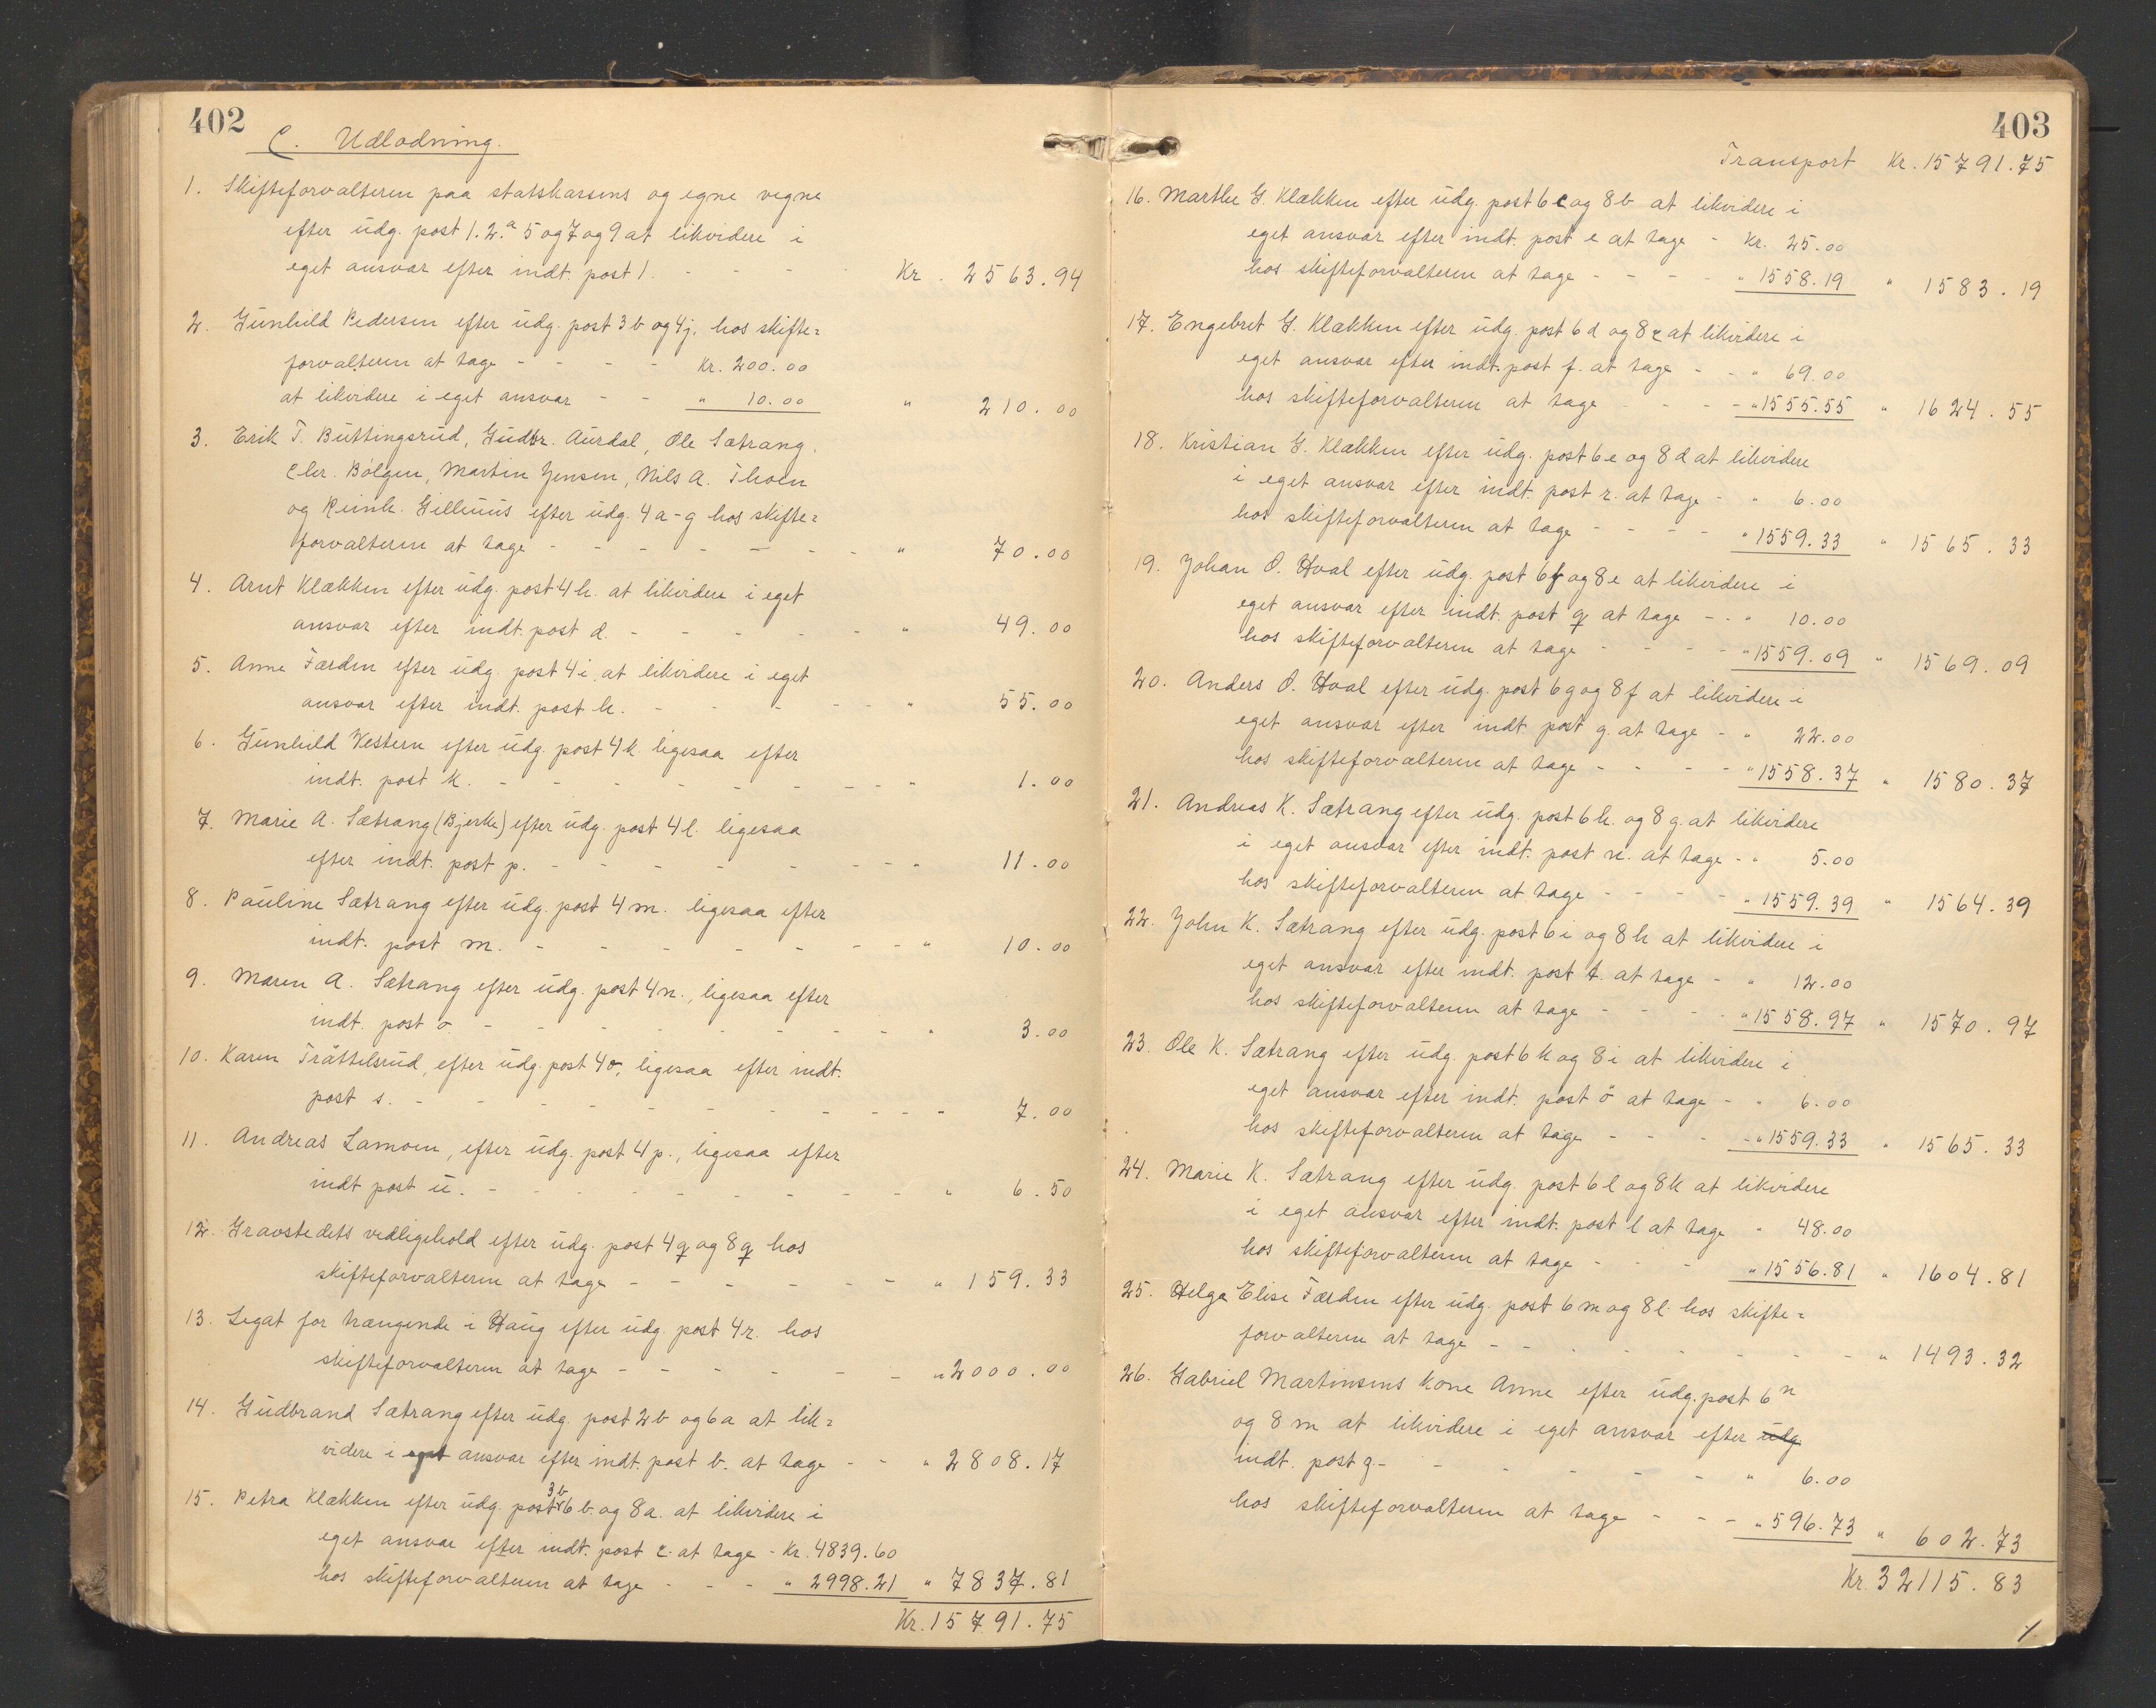 402
C. Udlodning.
1. Skifteforvalteren paa statskassens og egne vegne
efter udg. post 1. 2.a 5 og 7 og 9 at likvidere i
eget ansvar efter indt. post 1. - - - - Kr. 2563.94
2. Gunhild Pedersen efter udg. post 3 b og 4 j. hos skifte=
forvalteren at tage - - - - Kr. 200.00
at likvidere i eget ansvar - - " 10.00 " 210.00
3. Erik T. Buttingsrud, Gudbr. Aurdal, Ole Sætrang.
Chr. Bölgen, Martin Jensen, Nils A. Thoen
og Reinh. Gillenius efter udg. 4 a - g hos skifte=
forvalteren at tage - - - - - - - " 70.00
4. Arnt Klækken efter udg. post 4 h. at likvidere i eget
ansvar efter indt. post d. - - - - - " 49.00
5. Anne Færden efter udg. post 4 i. at likvidere i eget
ansvar efter indt. post h. - - - - - " 55.00
6. Gunhild Western efter udg. post 4 k. ligesaa efter
indt. post k. - - - - - - - - " 1.00
7. Marie A. Sætrang (Bjerke) efter udg. post 4 l. ligesaa
efter indt. post p. - - - - - - - - " 11.00
8. Pauline Sætrang efter udg. post 4 m. ligesaa efter
indt. post m. - - - - - - - - " 10.00
9. Maren A. Sætrang efter udg. post 4 n., ligesaa efter
indt. post o - - - - - - - - " 3.00
10. Karen Tråttelsrud, efter udg. post 4 o, ligesaa efter indt.
post s. - - - - - - - - - - " 7.00
11. Andreas Lamoen, efter udg. post 4 p., ligesaa efter
indt post u. - - - - - - - - - " 6.50
12. Gravstedets vedligehold efter udg. post 4 q og 8 q hos
skifteforvalteren at tage - - - - - - " 159.33
13. Legat for trængende i Haug efter udg. post 4 r. hos
skifteforvalteren at tage - - - - - - " 2000.00
14. Gudbrand Sætrang efter udg. post 2 b og 6 a at lik=
videre i eget ansvar efter indt. post b. at tage - - " 2808.17
15. Petra Klækken efter udg. post 3 b 6 b. og 8 a. at likvidere i
eget ansvar efter indt. post c. at tage - Kr. 4839.60
hos skifteforvalteren at tage - - - " 2998.21 " 7837.81
Kr. 15791.75
403
Transport Kr. 15791.75
16. Marthe G. Klækken efter udg. post 6 c og 8 b at likvidere i
eget ansvar efter indt. post e at tage - Kr. 25.00
hos skifteforvalteren at tage - - - - " 1558.19 " 1583.19
17. Engebret G. Klækken efter udg. post 6 d og 8 c at likvidere i
eget ansvar efter indt. post f. at tage - - " 69.00
hos skifteforvalteren at tage - - - - " 1555.55 " 1624.55
18. Kristian G. Klækken efter udg. post 6 e og 8 d at likvidere
i eget ansvar efter indt. post r. at tage - " 6.00
hos skifteforvalteren at tage - - - - " 1559.33 " 1565.33
19. Johan O. Hval efter udg. post 6 f og 8 e at likvidere i
eget ansvar efter indt. post q at tage - . " 10.00
hos skifteforvalteren at tage - - - - " 1559.09 " 1569.09
20. Anders O. Hval efter udg. post 6 g og 8 f at likvidere i
eget ansvar efter indt. post g. at tage - " 22.00
hos skifteforvalteren at tage - - - - " 1558.37 " 1580.37
21. Andreas K. Sætrang efter udg. post 6 h. og 8 g. at likvidere
i eget ansvar efter indt. post n. at tage - " 5.00
hos skifteforvalteren at tage - - - - " 1559.39 " 1564.39
22. John K. Sætrang efter udg. post 6 i og 8 h at likvidere i
eget ansvar efter indt. post t. at tage - " 12.00
hos skifteforvalteren at tage - - - - " 1558.97 " 1570.97
23. Ole K. Sætrang efter udg. post 6 k og 8 i at likvidere i
eget ansvar efter indt. post ö at tage - " 6.00
hos skifteforvalteren at tage - - - - " 1559.33 " 1565.33
24. Marie K. Sætrang efter udg. post 6 l og 8 k at likvidere
i eget ansvar efter indt. post l at tage " 48.00
hos skifteforvalteren at tage - - - " 1556.81 " 1604.81
25. Helga Elise Færden efter udg. post 6 m og 8 l. hos skifte=
forvalteren at tage - - - - - - - - " 1493.32
26. Gabriel Martinsens kone Anne efter udg. post 6 n
og 8 m at likvidere i eget ansvar efter udg.
indt. post z - - - - - - " 6.00
hos skifteforvalteren at tage - - - " 596.73 " 602.73
Kr. 32115.83